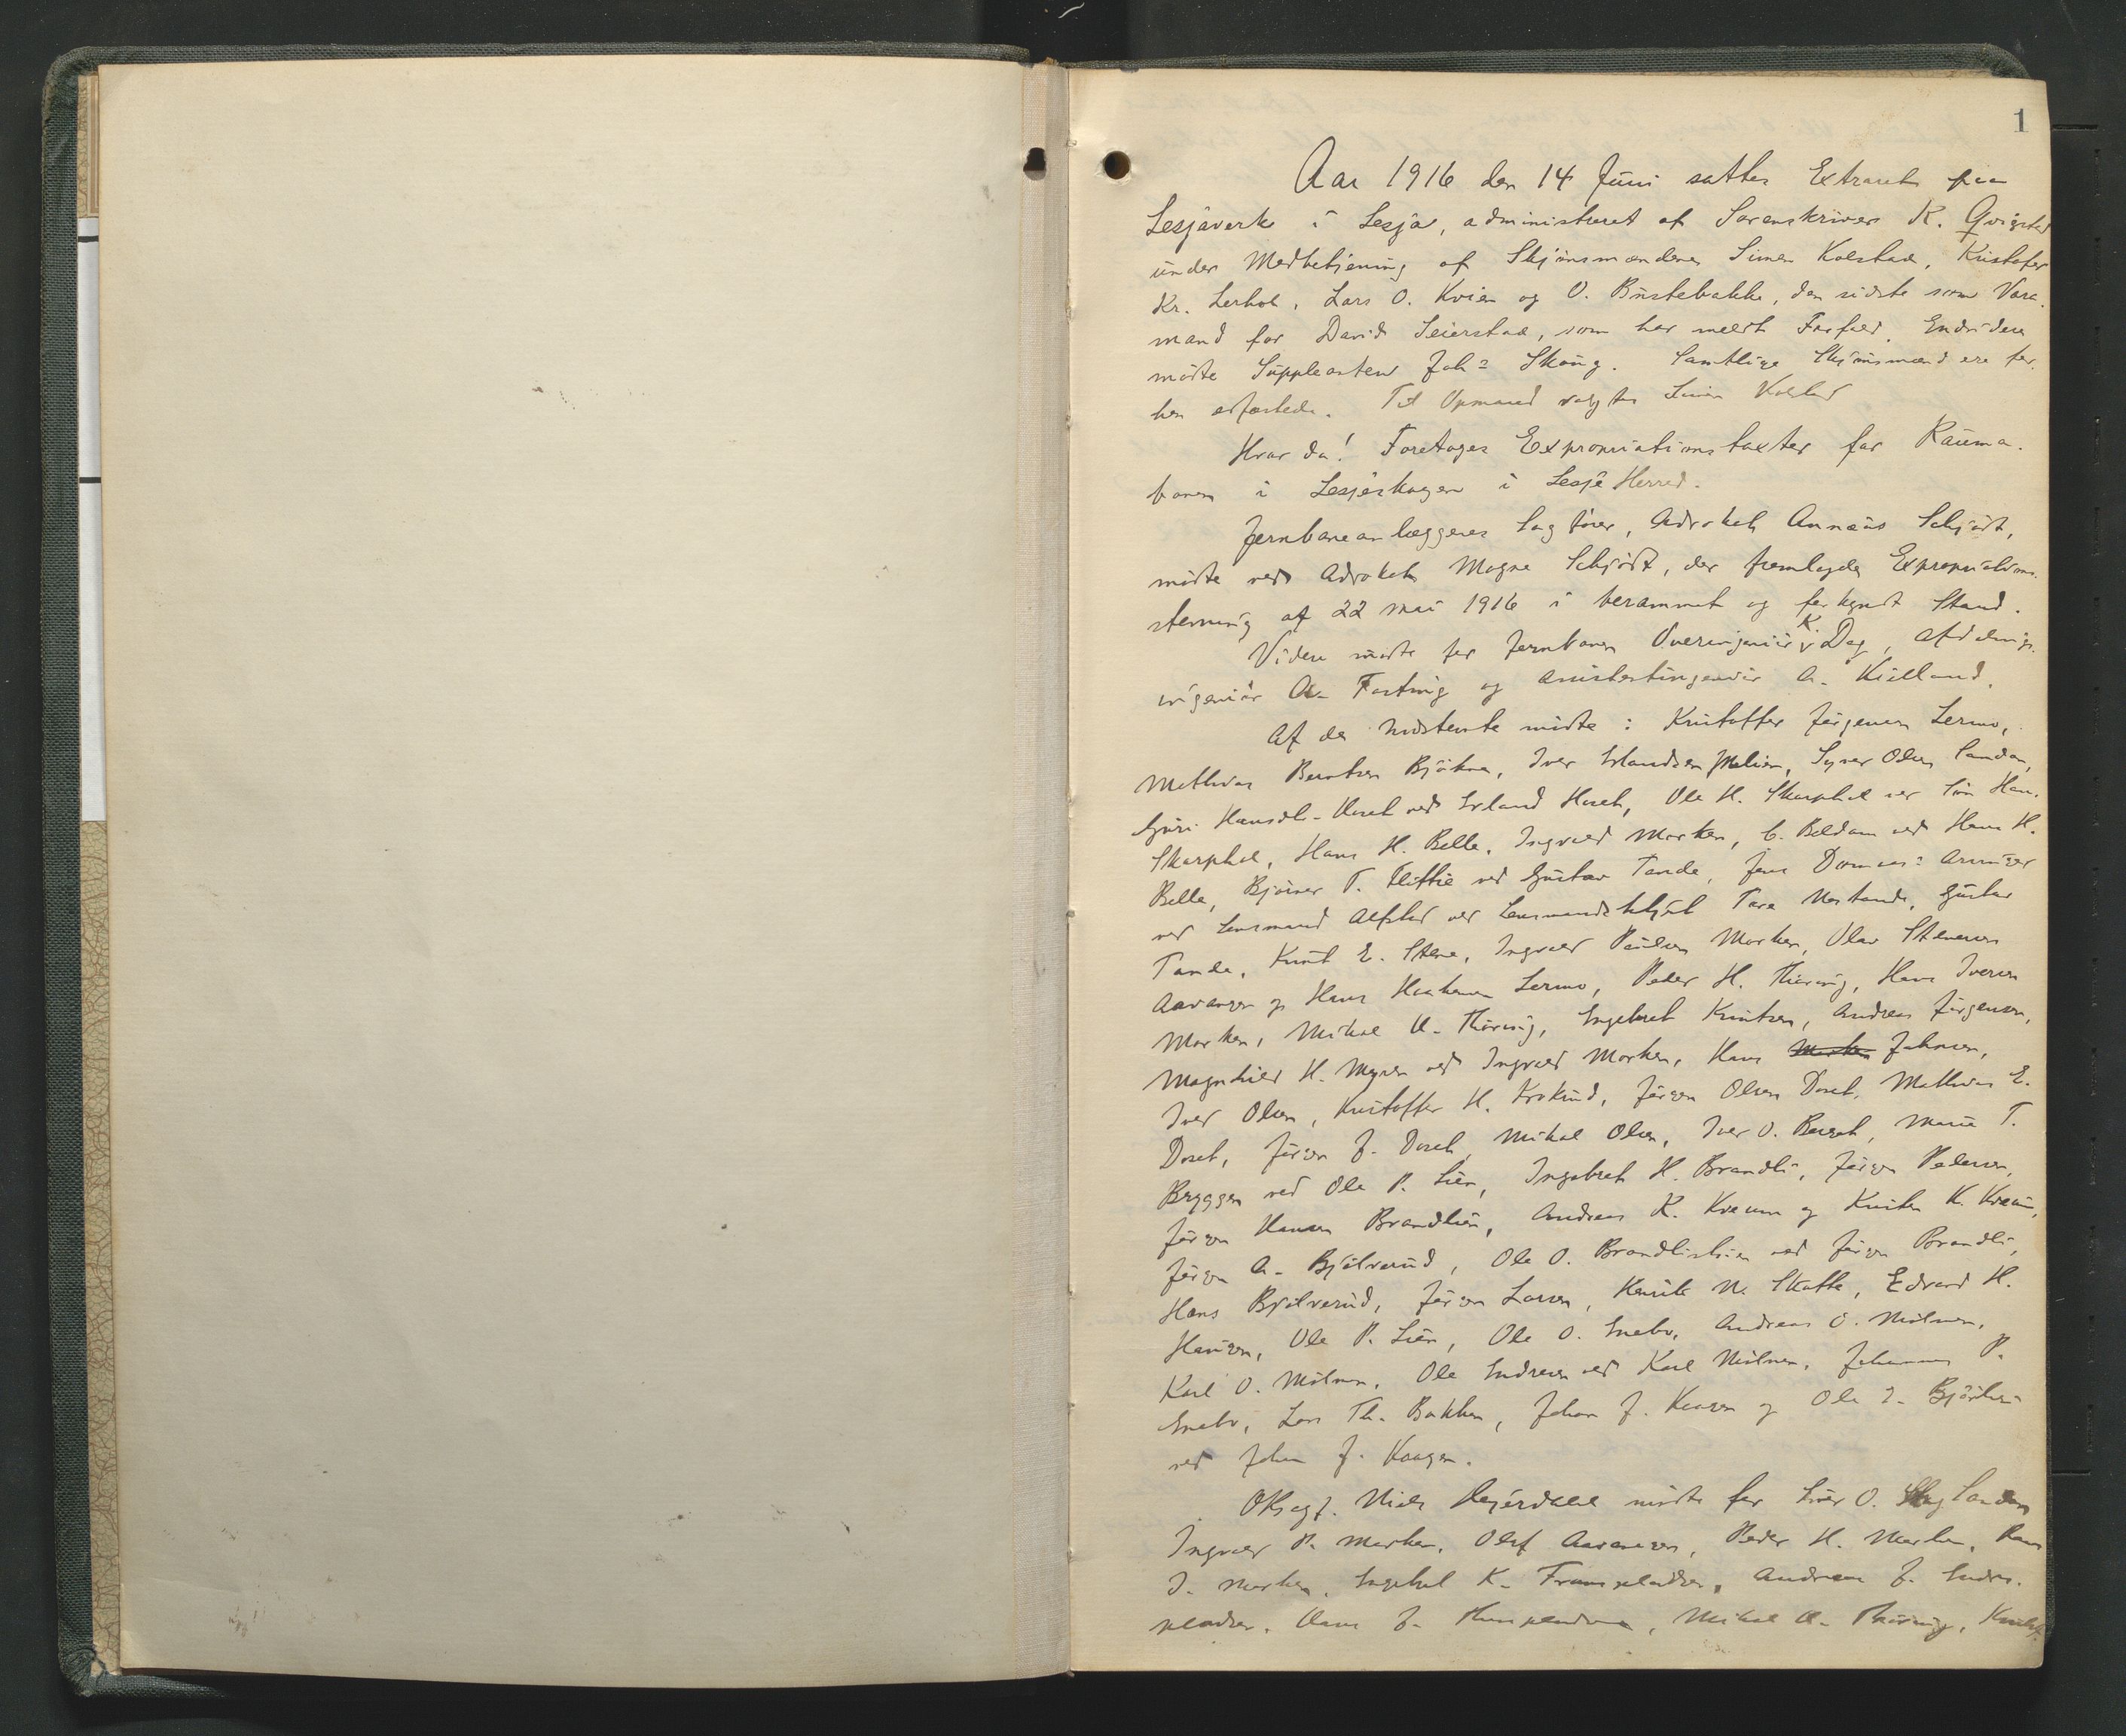 1
Aar 1916 den 14 Juni sattes Extraret paa
Lesjaverk i Lesja, administreret af Sorenskriver K. Qvigstad
under Medbetjening af Skjønsmændene Simen Kolstad, Kristofer
Kr. Lerhol, Lars O. Kvien og O. Bustebakke, den sidste som Vara-
mand for David Seierstad, som har meldt Forfald. Endvidere
mødte Suppleanten Johs Skoug. Samtlige Skjønsmænd ere før
hen edfæstede. Til Opmand valgtes Simen Kolstad
Hvor da! Foretoges Expropriationstaxter for Rauma-
banen i Lesjeskogen i Lesje Herred.
Jernbaneanlæggenes Sagfører, Advokat Annæus Schjødt,
mødte ved Advokat Magne Schjødt, der fremlagde Expropriations-
stevning af 22 mai 1916 i berammet og forkyndt Stand.
Videre mødte for Jernbanen Overingeniør K. Dag, Afdelings-
ingeniør A. Fasting og Assistentingeniør A. Kielland.
Af de Indstevnte mødte: Kristoffer Jørgensen Lermo,
Mathias Berntsen Bjøkne, Iver Erlandsen Melien, Syver Olsen Sandom,
Guri Hansdtr Hoset ved Erland Hoset, Ole H. Skarphol ved Søn Hans
Skarphol, Hans H. Belle, Ingvald Morken, C. Boldam ved Hans H.
Belle, Bjørner T. Flittie ved Gustav Tande, Jens Domaas:
ved Lensmand Alfstad ved Lensmandsbetjent Tore Nestande, Gustav
Tande, Knut E. Stene, Ingvald Paulsen Morken, Olav Stenersen
Aavangen og Hans Haakensen Lermo, Peder H. Thøring, Hans Iversen
Morken, Mikal A. Thøring, Engebret Knutsen, Andreas Jørgensen,
Magnhild H. Myren ved Ingvald Morken, Hans Johnsen,
Iver Olsen, Kristoffer H. Krokrud, Jørgen Olsen Doset, Mathias E.
Doset, Jørgen J. Doset, Mikal Olsen, Iver O. Berget, Marie T.
Bryggen ved Ole P. Lien, Ingebret H. Brandli, Jørgen Pedersen,
Jørgen Hansen Brandlien, Andreas K. Kveum og Kristen K. Kveum,
Jørgen A. Bjølverud, Ole O. Brandlistuen ved Jørgen Brandli,
Hans Bjølverud, Jørgen Larsen, Henrik N. Skotte, Edvard H.
Haugen, Ole P. Lien, Ole O. Enebo, Andreas O. Mølmen,
Karl O. Mølmen, Ole Endresen ved Karl Mølmen, Johannes P.
Enebo, Lars Th. Bakken, Johan J. Kaagen og Ole I. Bjørli
ved Johan J. Kaagen.
OKsagf. Niels mødte for Siver O. Sandom
Ingvald P. Morken, Olaf Aavangen, Peder H. Morken, Hans
I. Morken, Engebret K. Frampladsen, Andreas J. Endre-
pladsen, Hans J., Mikal A. Thøring, Kristof-